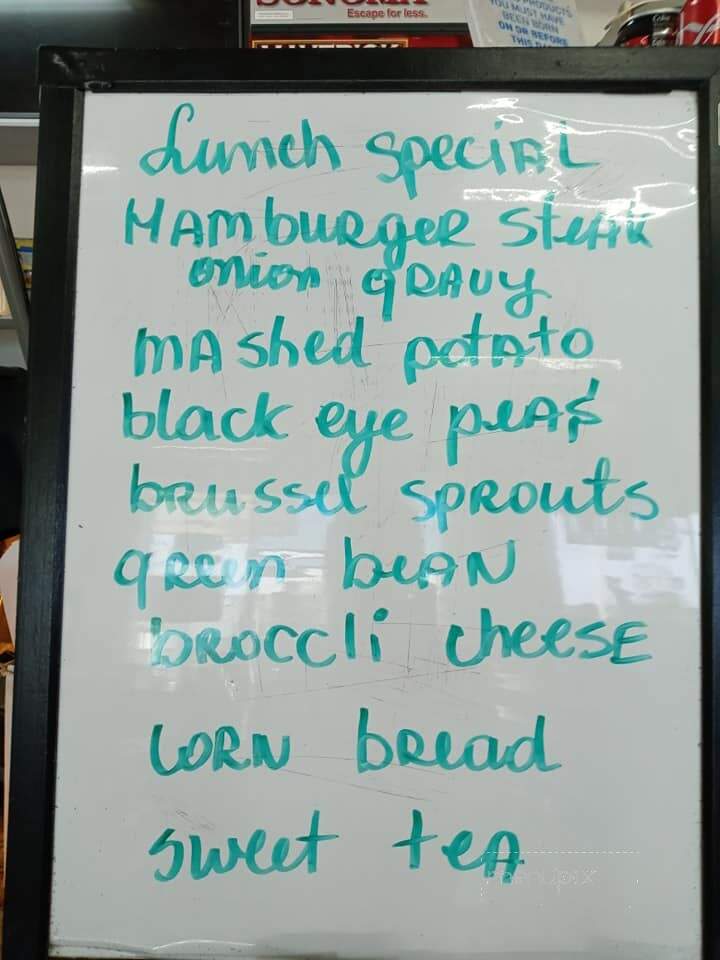 SONOMA
Escape for less.
MAVERICK
PRODUCTS
YOU MUST HAVE
BEEN BORN
ON OR BEFORE
Lunch special
HAMburgER steak
onion gRAVY
mAshed potAto
black eye peAs
bRussel sprouts
green beAN
bROCCli cheesE
CORN bRead
sweet teA
menupix